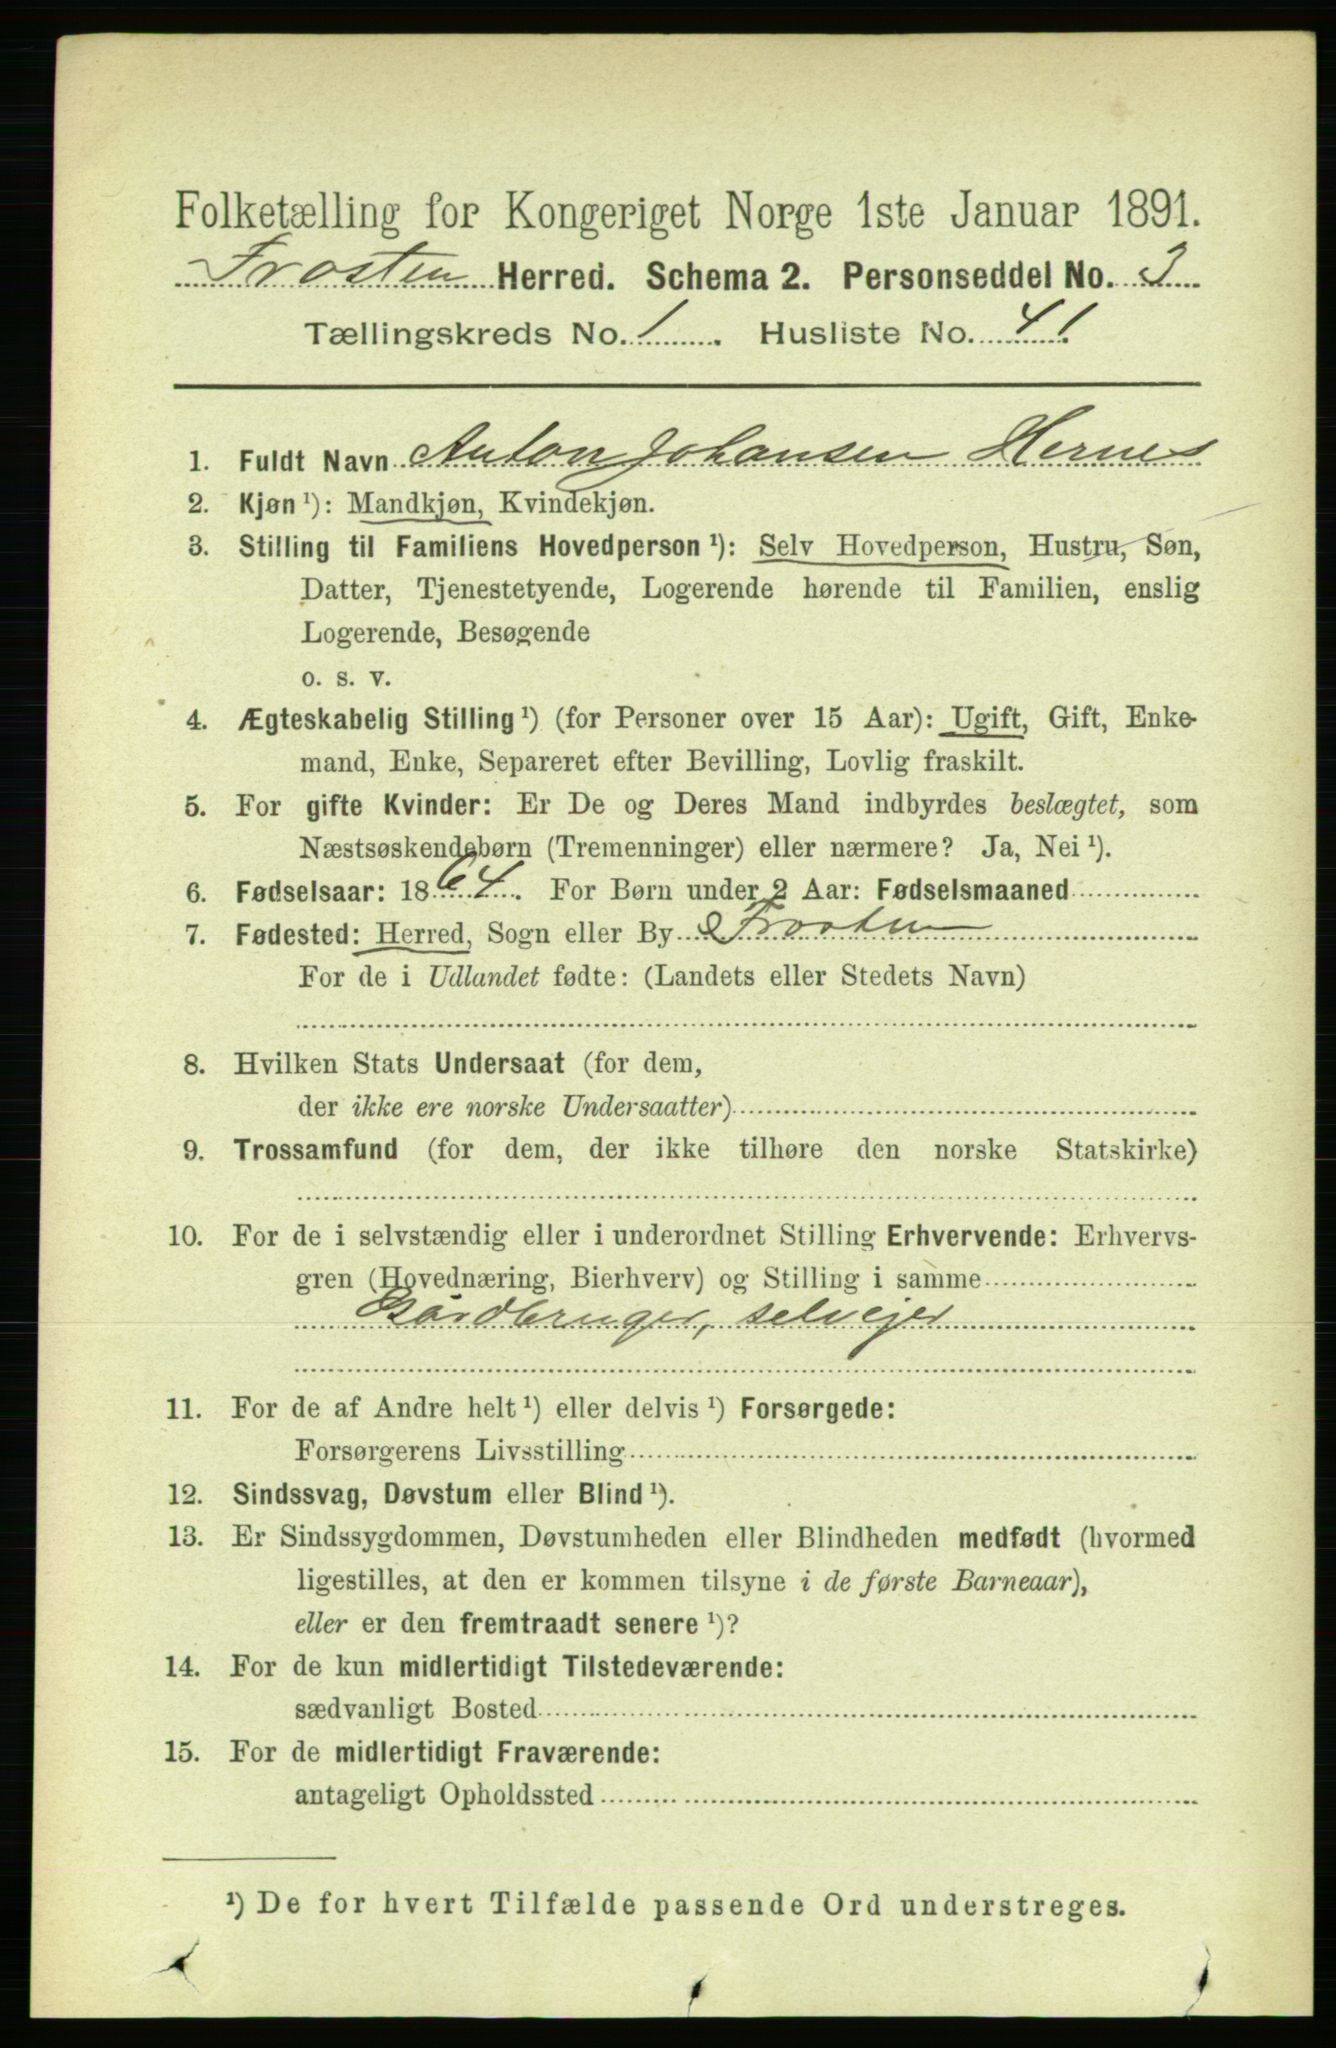 Folketælling for Kongeriget Norge 1ste Januar 1891.
Frosten Herred. Schema 2. Personseddel No. 3
Tællingskreds No. 1. Husliste No. 41
1. Fuldt Navn Anton Johansen Hernes
2. Kjøn ¹): Mandkjøn, Kvindekjøn.
3. Stilling til Familiens Hovedperson ¹): Selv Hovedperson, Hustru, Søn,
Datter, Tjenestetyende, Logerende hørende til Familien, enslig
Logerende, Besøgende
o. s. v.
4. Ægteskabelig Stilling ¹) (for Personer over 15 Aar): Ugift, Gift, Enke-
mand, Enke, Separeret efter Bevilling, Lovlig fraskilt.
5. For gifte Kvinder: Er De og Deres Mand indbyrdes beslægtet, som
Næstsøskendebørn (Tremenninger) eller nærmere? Ja, Nei ¹).
6. Fødselsaar: 1864. For Børn under 2 Aar: Fødselsmaaned
7. Fødested: Herred, Sogn eller By Frosten
For de i Udlandet fødte: (Landets eller Stedets Navn)
8. Hvilken Stats Undersaat (for dem,
der ikke ere norske Undersaatter)
9. Trossamfund (for dem, der ikke tilhøre den norske Statskirke)
10. For de i selvstændig eller i underordnet Stilling Erhvervende: Erhvervs-
gren (Hovednæring, Bierhverv) og Stilling i samme
Gårdbruger, selveier
11. For de af Andre helt ¹) eller delvis ¹) Forsørgede:
Forsørgerens Livsstilling
12. Sindssvag, Døvstum eller Blind ¹).
13. Er Sindssygdommen, Døvstumheden eller Blindheden medfødt (hvormed
ligestilles, at den er kommen tilsyne i de første Barneaar),
eller er den fremtraadt senere ¹)?
14. For de kun midlertidigt Tilstedeværende:
sædvanligt Bosted
15. For de midlertidigt Fraværende:
antageligt Opholdssted
¹) De for hvert Tilfælde passende Ord understreges.